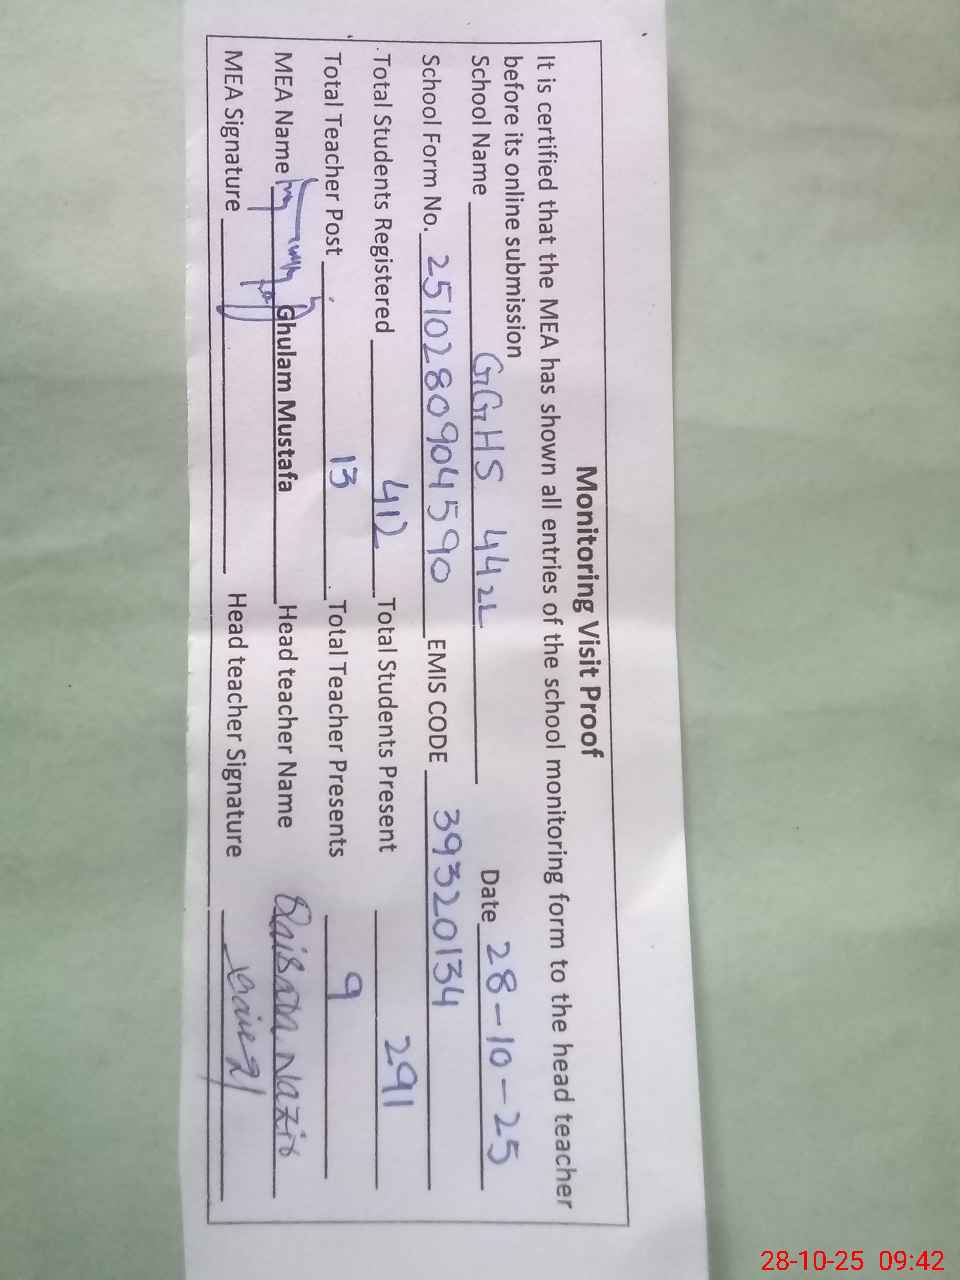 Monitoring Visit Proof
It is certified that the MEA has shown all entries of the school monitoring form to the head teacher
before its online submission
School Name GGHS 44 2L Date 28-10-25
School Form No. 2510280904590 EMIS CODE 39320134
Total Students Registered 412 Total Students Present 291
Total Teacher Post 13 Total Teacher Presents 9
MEA Name Ghulam Mustafa Head teacher Name Nazir
MEA Signature Head teacher Signature
28-10-25 09:42